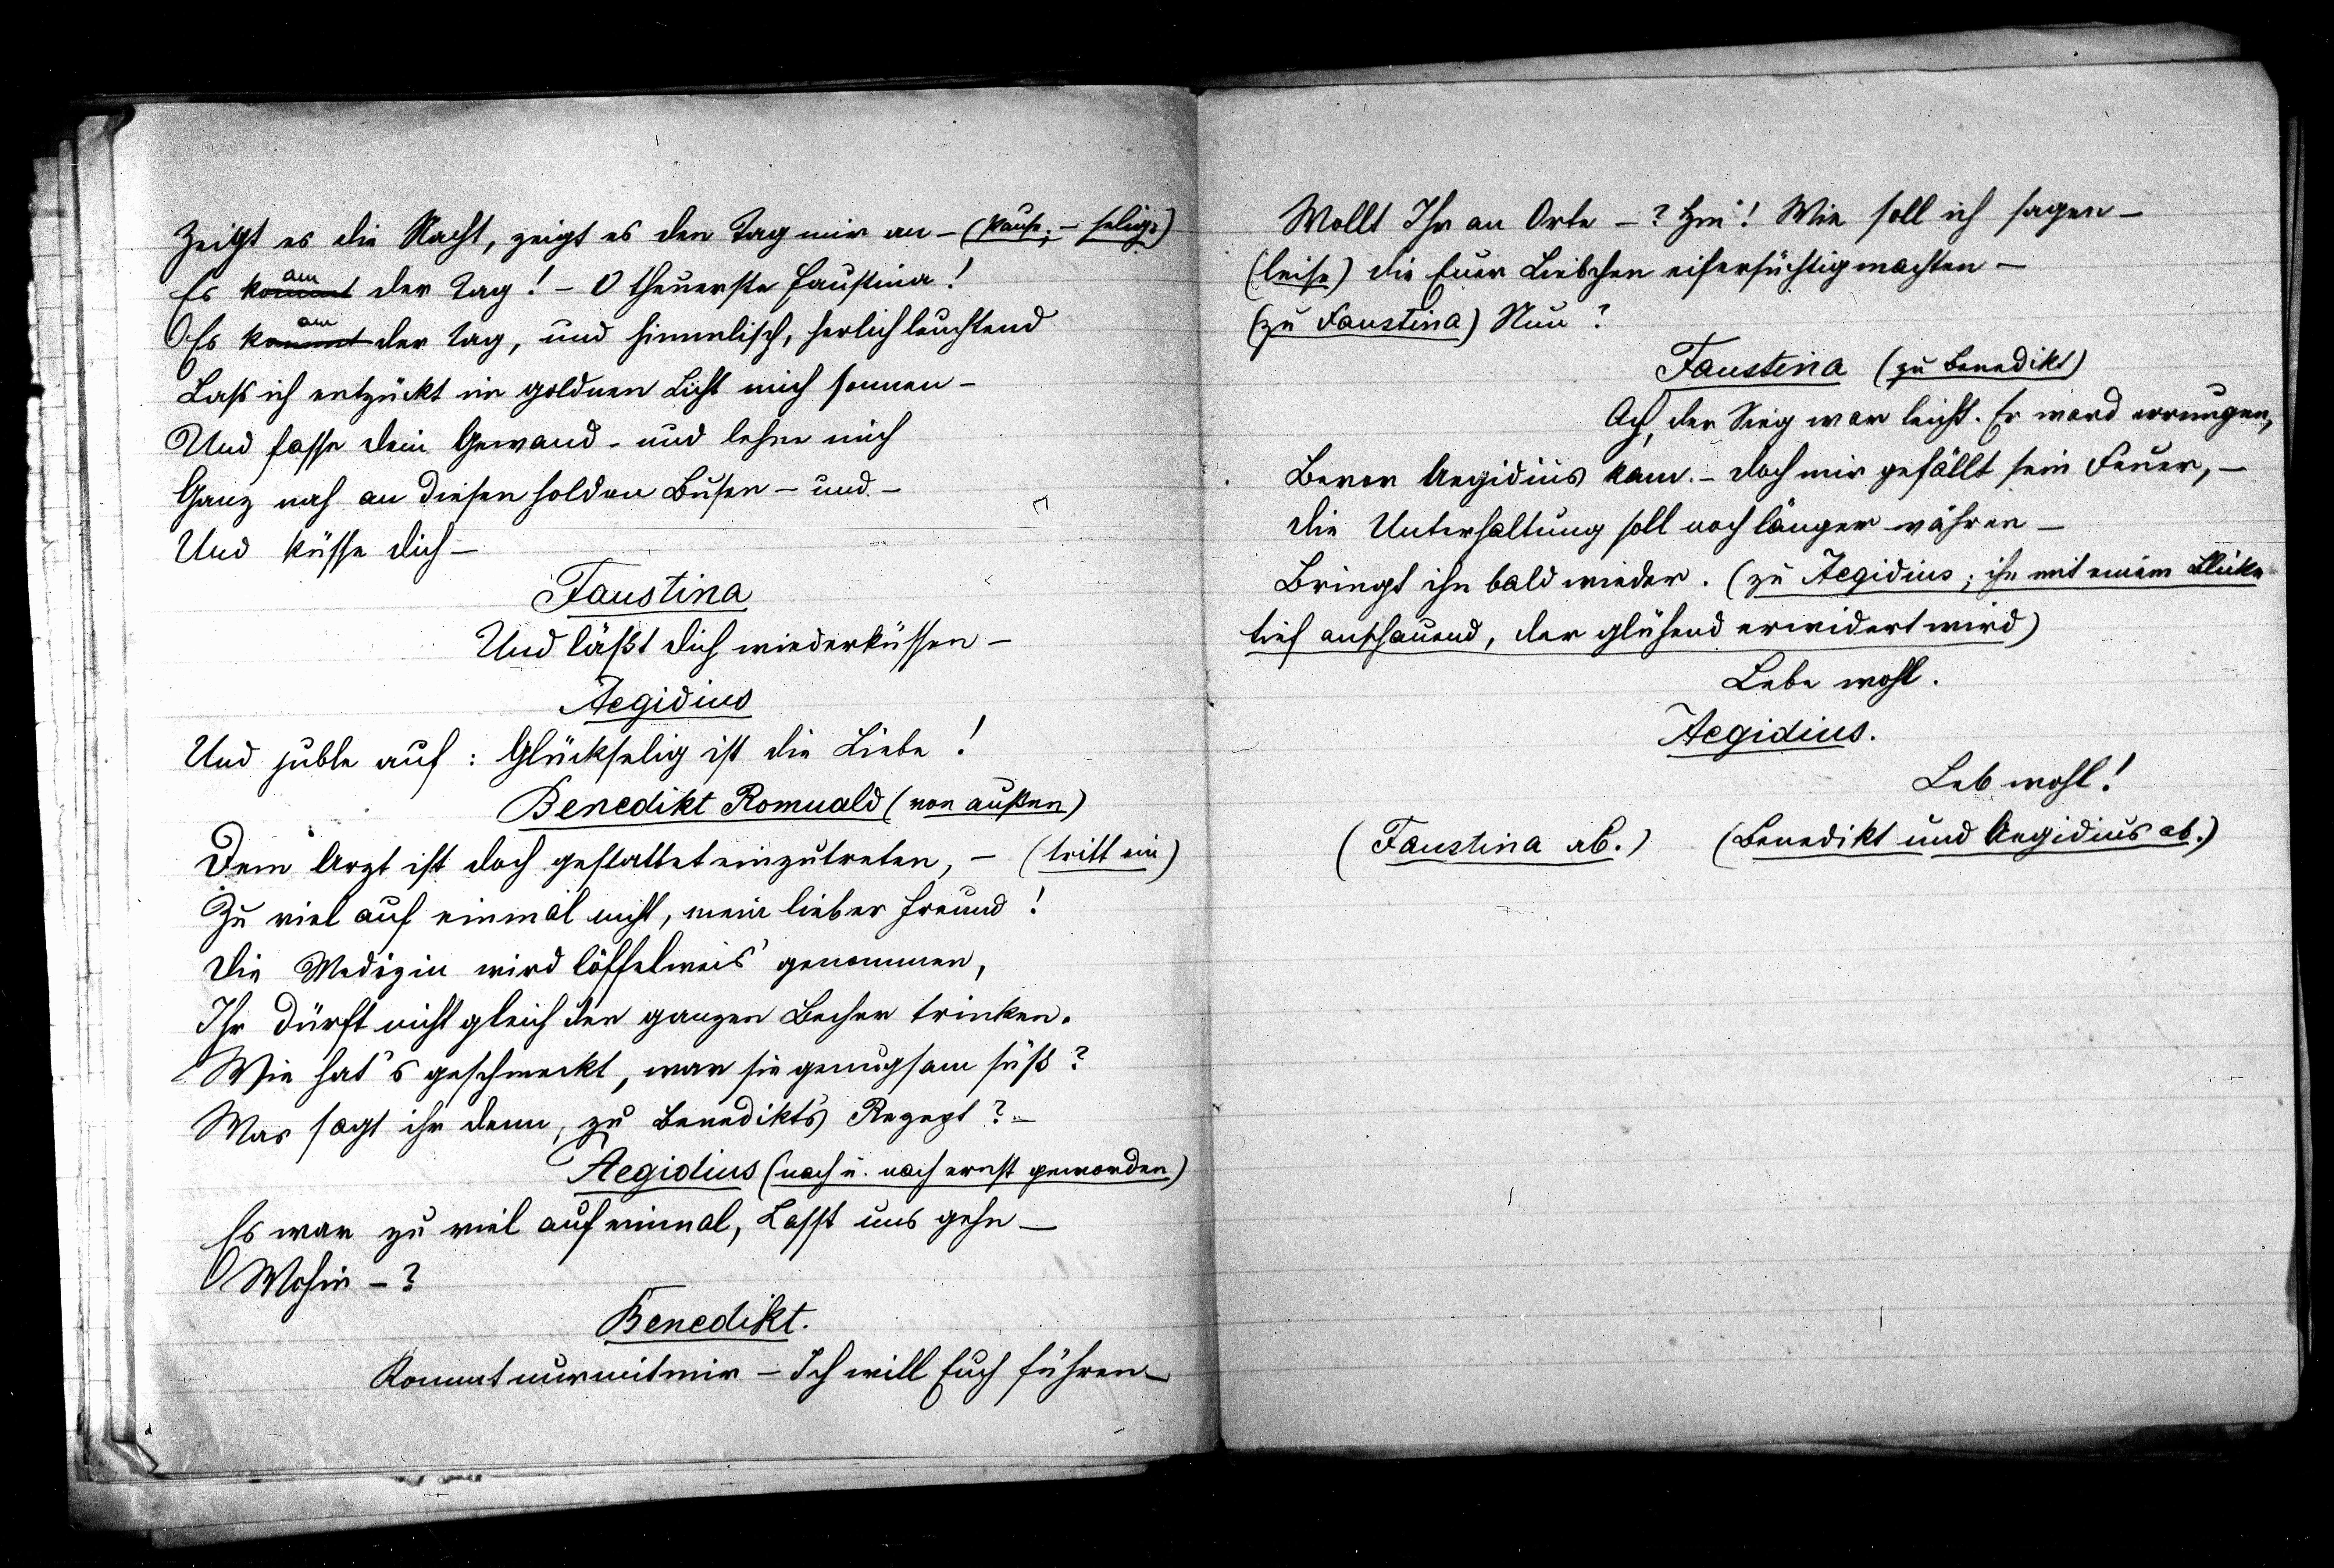 Zeigt es die Nacht, zeigt es den Tag mir an – (Pause; – selig:)
am am
Es kommt der Tag! – O theuerste Faustina!
Es kommt der Tag, und himmlisch, herlich leuchtend
Laß ich entzückt im goldnen Licht mich sonnen –
Und fasse dein Gewand – und lehne mich
Ganz nah an diesen holden Busen – und –
Und küsse dich –
Faustina
Und läßt dich wiederküssen –
Aegidius
Und juble auf: Glückselig ist die Liebe!
Benedikt Romuald (von außen)
Dem Arzt ist doch gestattet einzutreten, – (tritt ein)
Zu viel auf einmal nicht, mein lieber Freund!
Die Medizin wird löffelweis' genommen,
Ihr dürft nicht gleich den ganzen Becher trinken.
Wie hat's geschmeckt, war sie genugsam süß?
Was sagt ihr denn, zu Benedikt's Rezept? –
Aegidius (nach u. nach ernst geworden)
Es war zu viel auf einmal, Lasst uns gehn –
Wohin – ?
Benedikt.
Kommt nur mit mir – Ich will Euch führen –
Wollt Ihr an Orte – ? Hm! Wie soll ich sagen –
(leise) die Euer Liebchen eifersüchtig machten –
(zu Faustina) Nun?
Faustina (zu Benedikt)
Ach, der Sieg war leicht. Er ward errungen,
Bevor Aegidius kam. – Doch mir gefällt sein Feuer, –
Die Unterhaltung soll noch länger währen –
Bringt ihn bald wieder. (zu Aegidius; ihn mit einem Blicke
tief anschauend, der glühend erwidert wird)
Lebe wohl.
Aegidius.
Leb wohl!
(Faustina ab.) (Benedikt und Aegidius ab.)